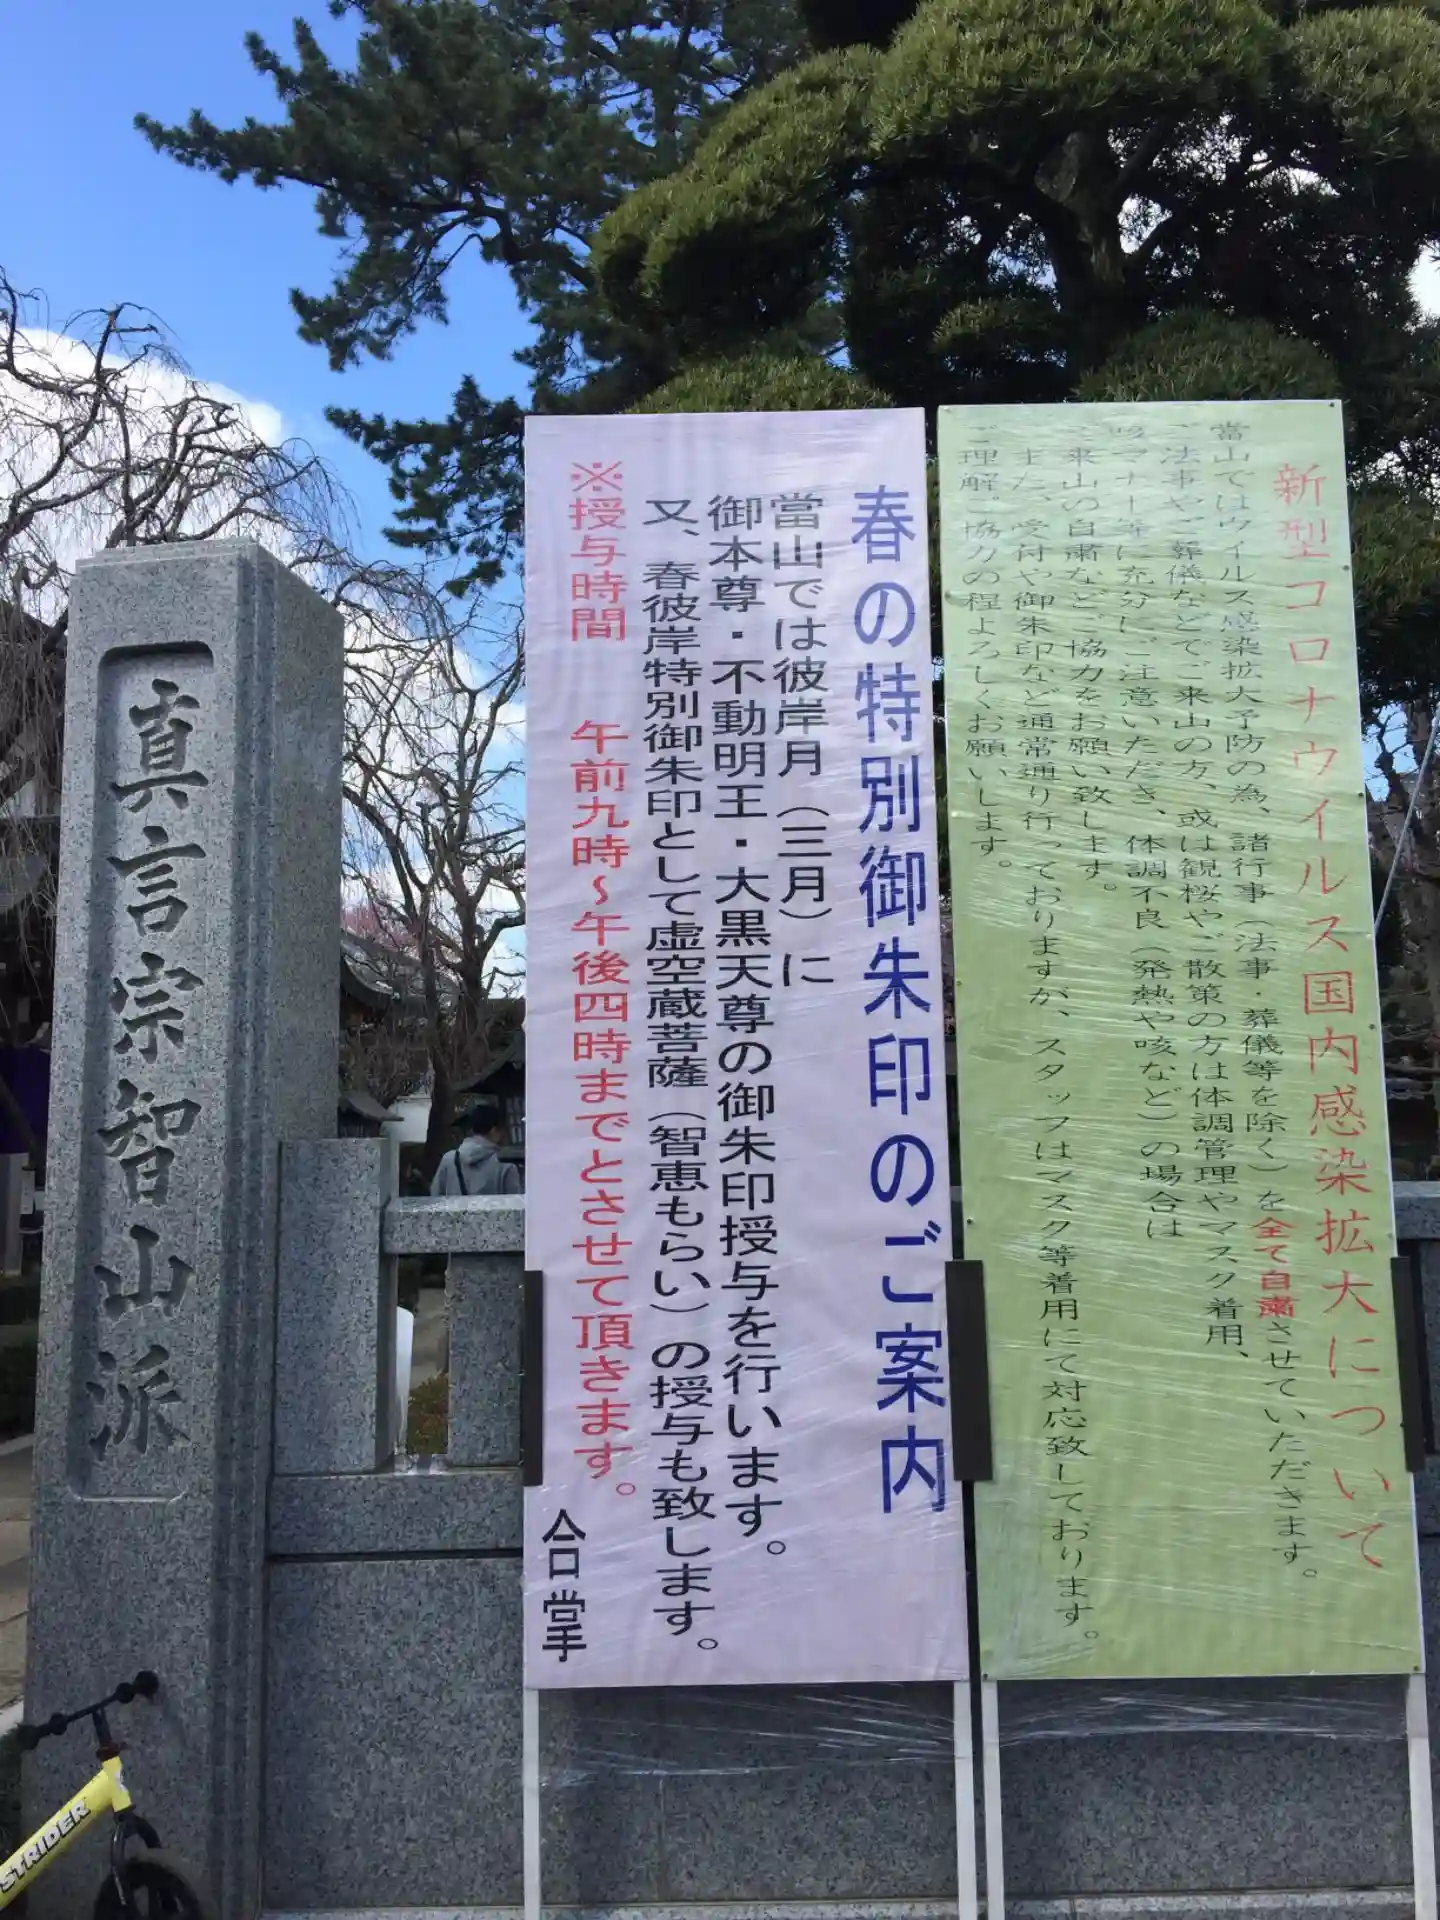 新型コロナウイルス国内感染拡大について
當山ではウイルス感染拡大予防の為、諸行事（法事・葬儀等を除く）を全て自粛させていただきます。
ご法事やご葬儀などでご来山の方、或は観桜やご散策の方は体調管理やマスク着用、
咳マナー等に充分にご注意いただき、体調不良（発熱や咳など）の場合は
ご来山の自粛などご協力をお願い致します。
また、受付や御朱印など通常通り行っておりますが、スタッフはマスク等着用にて対応致しております。
ご理解ご協力の程よろしくお願いします。
春の特別御朱印のご案内
當山では彼岸月（三月）に
御本尊・不動明王・大黒天尊の御朱印授与を行います。
又、春彼岸特別御朱印として虚空蔵菩薩（智恵もらい）の授与も致します。
※授与時間　午前九時〜午後四時までとさせて頂きます。
合掌
真言宗智山派
STRIDER